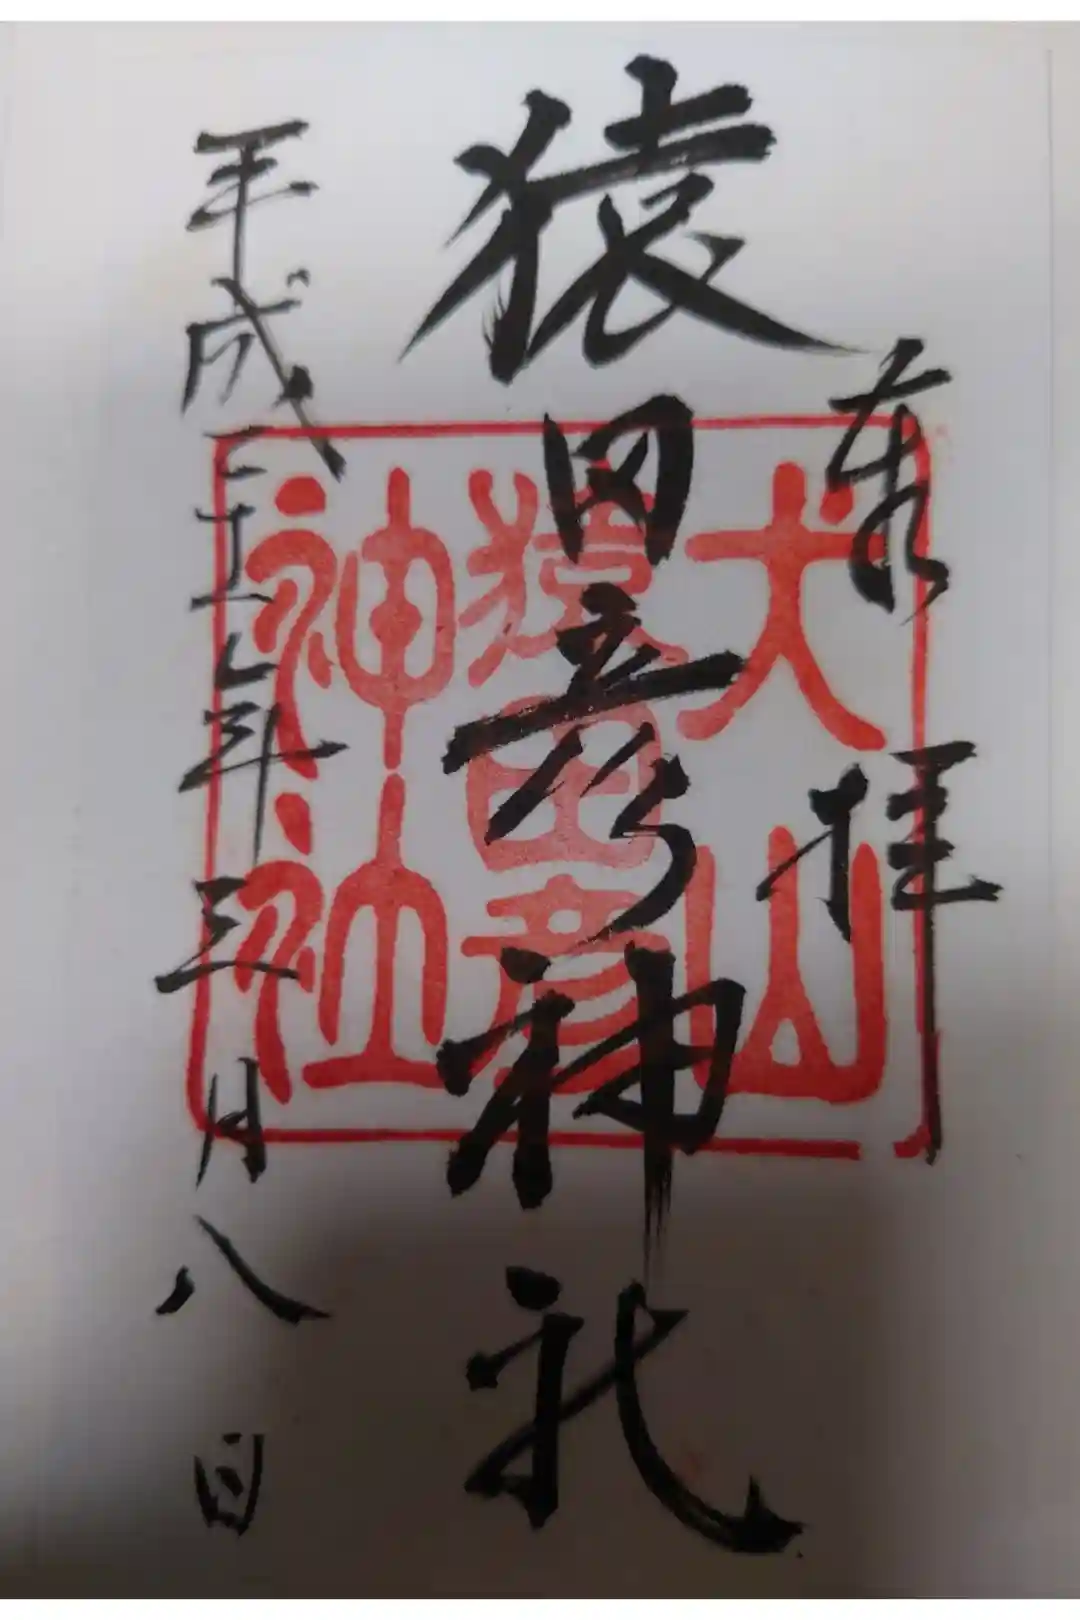 奉拝
猿田彦神社
犬山
猿田彦
神社
平成二十七年三月八日